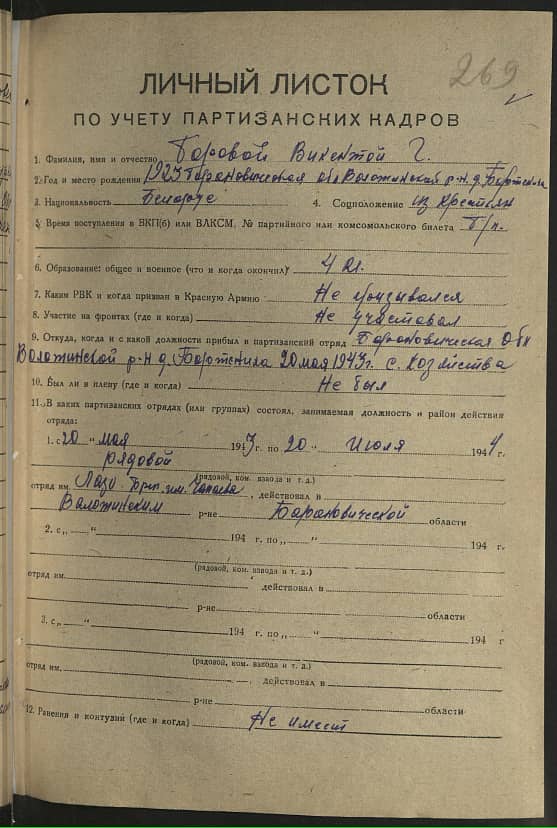 269
ЛИЧНЫЙ ЛИСТОК
ПО УЧЕТУ ПАРТИЗАНСКИХ КАДРОВ
1. Фамилия, имя и отчество Боровой Викентой Г.
2. Год и место рождения 1923 Барановическая обл Воложинской р-н д.
3. Национальность Беларус 4. Соцположение из крестьян
5. Время поступления в ВКП(б) или ВЛКСМ, № партийного или комсомольского билета Б/п.
6. Образование: общее и военное (что и когда окончил) 4 кл.
7. Каким РВК и когда призван в Красную Армию Не призывался
8. Участие на фронтах (где и когда) Не участовал
9. Откуда, когда и с какой должности прибыл в партизанский отряд Барановическая Обл
Воложинской р-н д. 20 мая 1943 г. с. хозяйства
10. Был ли в плену (где и когда) Не был
11. В каких партизанских отрядах (или группах) состоял, занимаемая должность и район действия
отряда:
1. с „20 " мая 1943 г. по „20 " Июля 1944 г.
рядовой
(рядовой, ком. взвода и т. д.)
отряд им. Лазо Бриг. им. Чапаева, действовал в
Воложинским р-не Барановической области
2. с „ " 194 г. по „ " 194 г.
(рядовой, ком. взвода и т. д.)
отряд им. действовал в
р-не области
3. с „ " 194 г. по „ " 194 г
(рядовой, ком. взвода и т. д.)
отряд им. , действовал в
р-не области
12. Ранения и контузии (где и когда) Не имеет